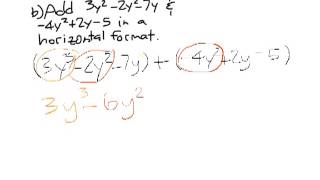 b) Add 3y² - 2y² - 7y &
-4y² + 2y - 5 in a
horizontal format.
(3y³ - 2y² - 7y) + (-4y² + 2y - 5)
3y³ - 6y²